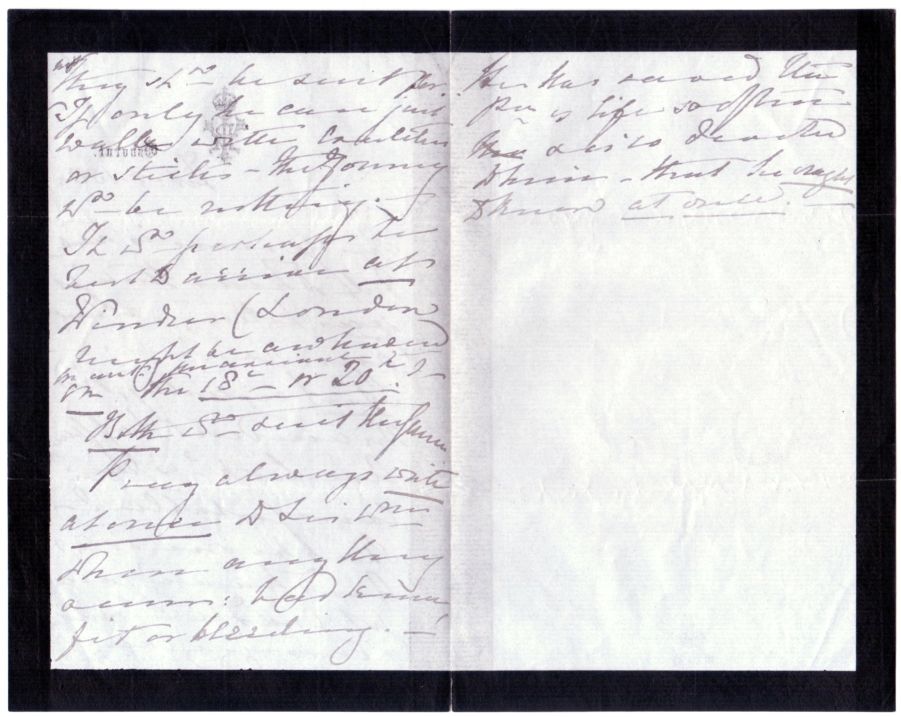 they shd be sent
If only he can just
walk with crutches
or sticks – the Journey
wd be nothing. –
It wd perhaps be
best to arrive at
Windsor (London
might be awkward
on the 18th – or 20th). –
Both wd suit the Queen
Pray always write
at once to Sir Wm
when anything
occurs: had been a
fit or bleeding. –
He has saved the
Pce's life so often
& is so devoted
to him – that he ought
to know at once.